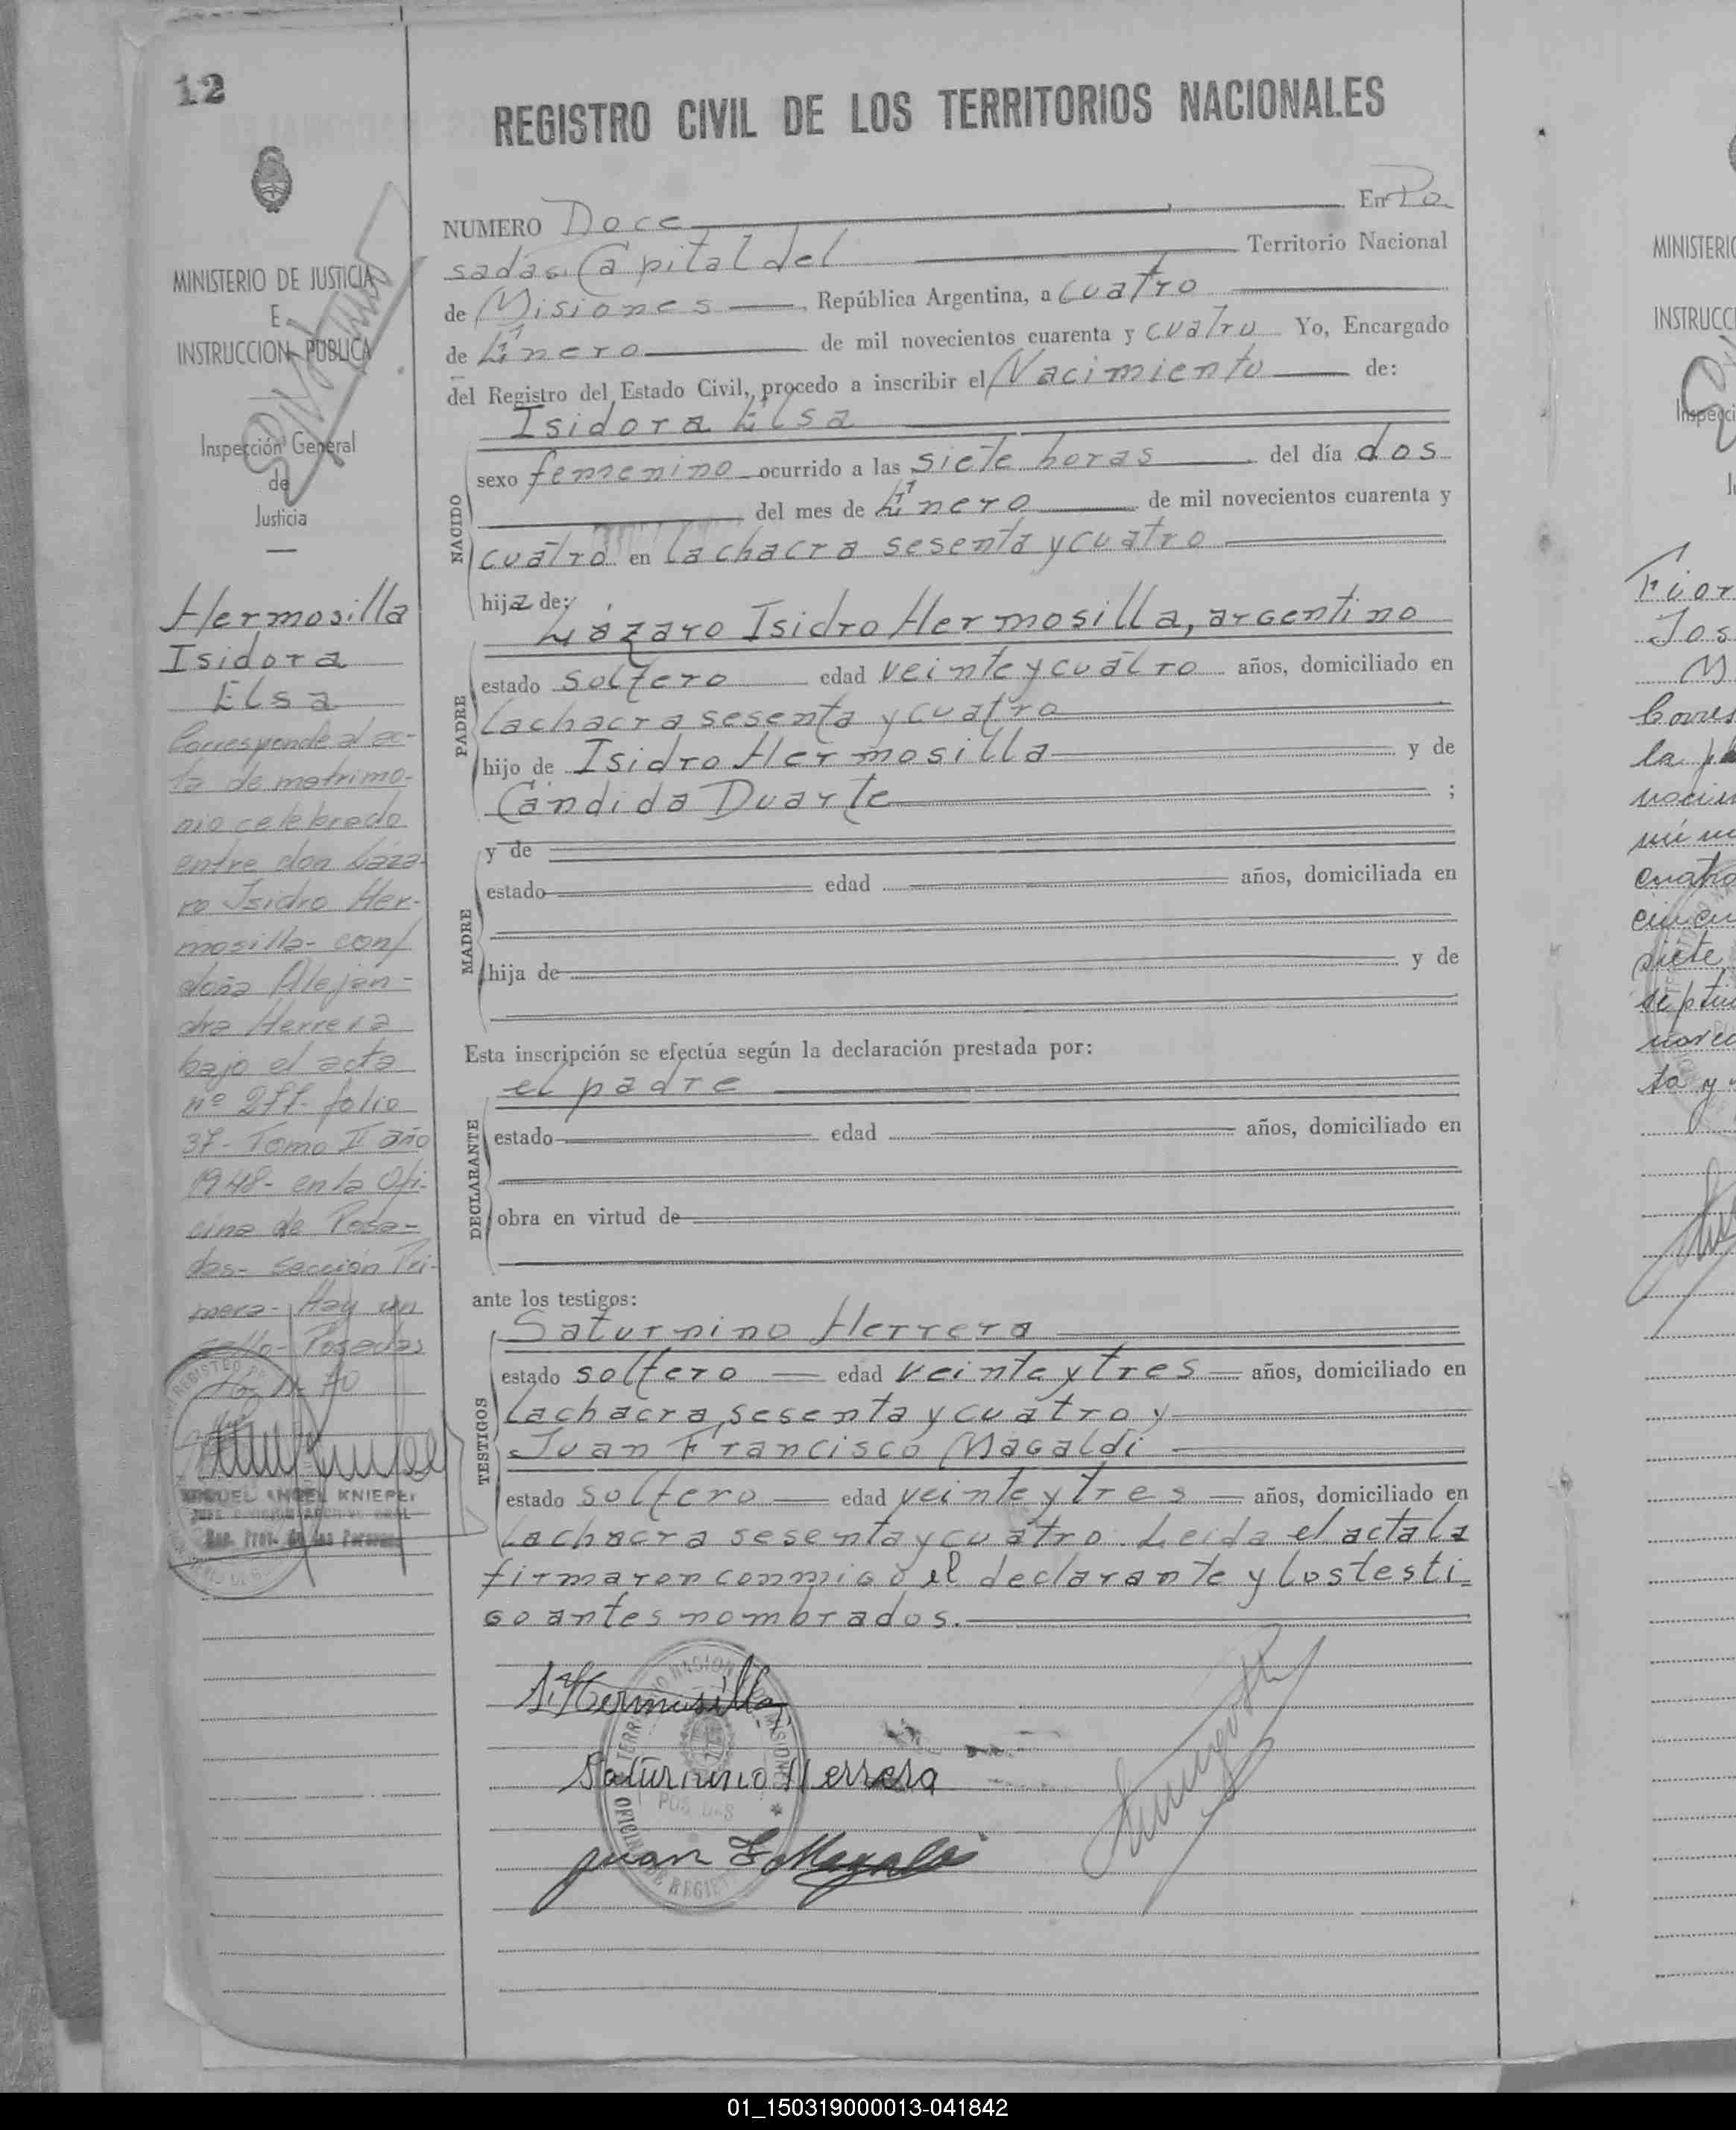 12
REGISTRO CIVIL DE LOS TERRITORIOS NACIONALES
NUMERO Doce En Po
sadas, Capital del Territorio Nacional
de Misiones, República Argentina, a cuatro
de Enero de mil novecientos cuarenta y cuatro Yo, Encargado
del Registro del Estado Civil, procedo a inscribir el Nacimiento de:
Isidora Elsa
sexo femenino ocurrido a las siete horas del día dos
del mes de Enero de mil novecientos cuarenta y
cuatro en la chacra sesenta y cuatro
NACIDO
hija de:
Lázaro Isidro Hermosilla, argentino
estado soltero edad veinte y cuatro años, domiciliado en
la chacra sesenta y cuatro
hijo de Isidro Hermosilla y de
Cándida Duarte ;
PADRE
y de
estado edad años, domiciliada en
hija de y de
MADRE
Esta inscripción se efectúa según la declaración prestada por:
el padre
estado edad años, domiciliado en
obra en virtud de
DECLARANTE
ante los testigos:
Saturnino Herrera
estado soltero edad veinte y tres años, domiciliado en
la chacra sesenta y cuatro y
Juan Francisco Magaldi
estado soltero edad veinte y tres años, domiciliado en
la chacra sesenta y cuatro. Leida el acta la
firmaron conmigo el declarante y los testi-
go antes nombrados.
TESTIGOS
Hermosilla
Saturnino Herrera
Juan F. Magaldi
MINISTERIO DE JUSTICIA
E
INSTRUCCION PUBLICA
Inspección General
de
Justicia
Hermosilla
Isidora
Elsa
Corresponde al ac-
ta de matrimo-
nio celebrado
entre don Láza-
ro Isidro Her-
mosilla- con
doña Alejan-
dra Herrera
bajo el acta
nº 277- folio
37- Tomo II año
1948- en la Ofi-
cina de Posa-
das- sección Pri-
mera- Hay un
sello- Posadas
MIGUEL ANGEL KNIEPEI
MINISTERIO
INSTRUCC
01_150319000013-041842